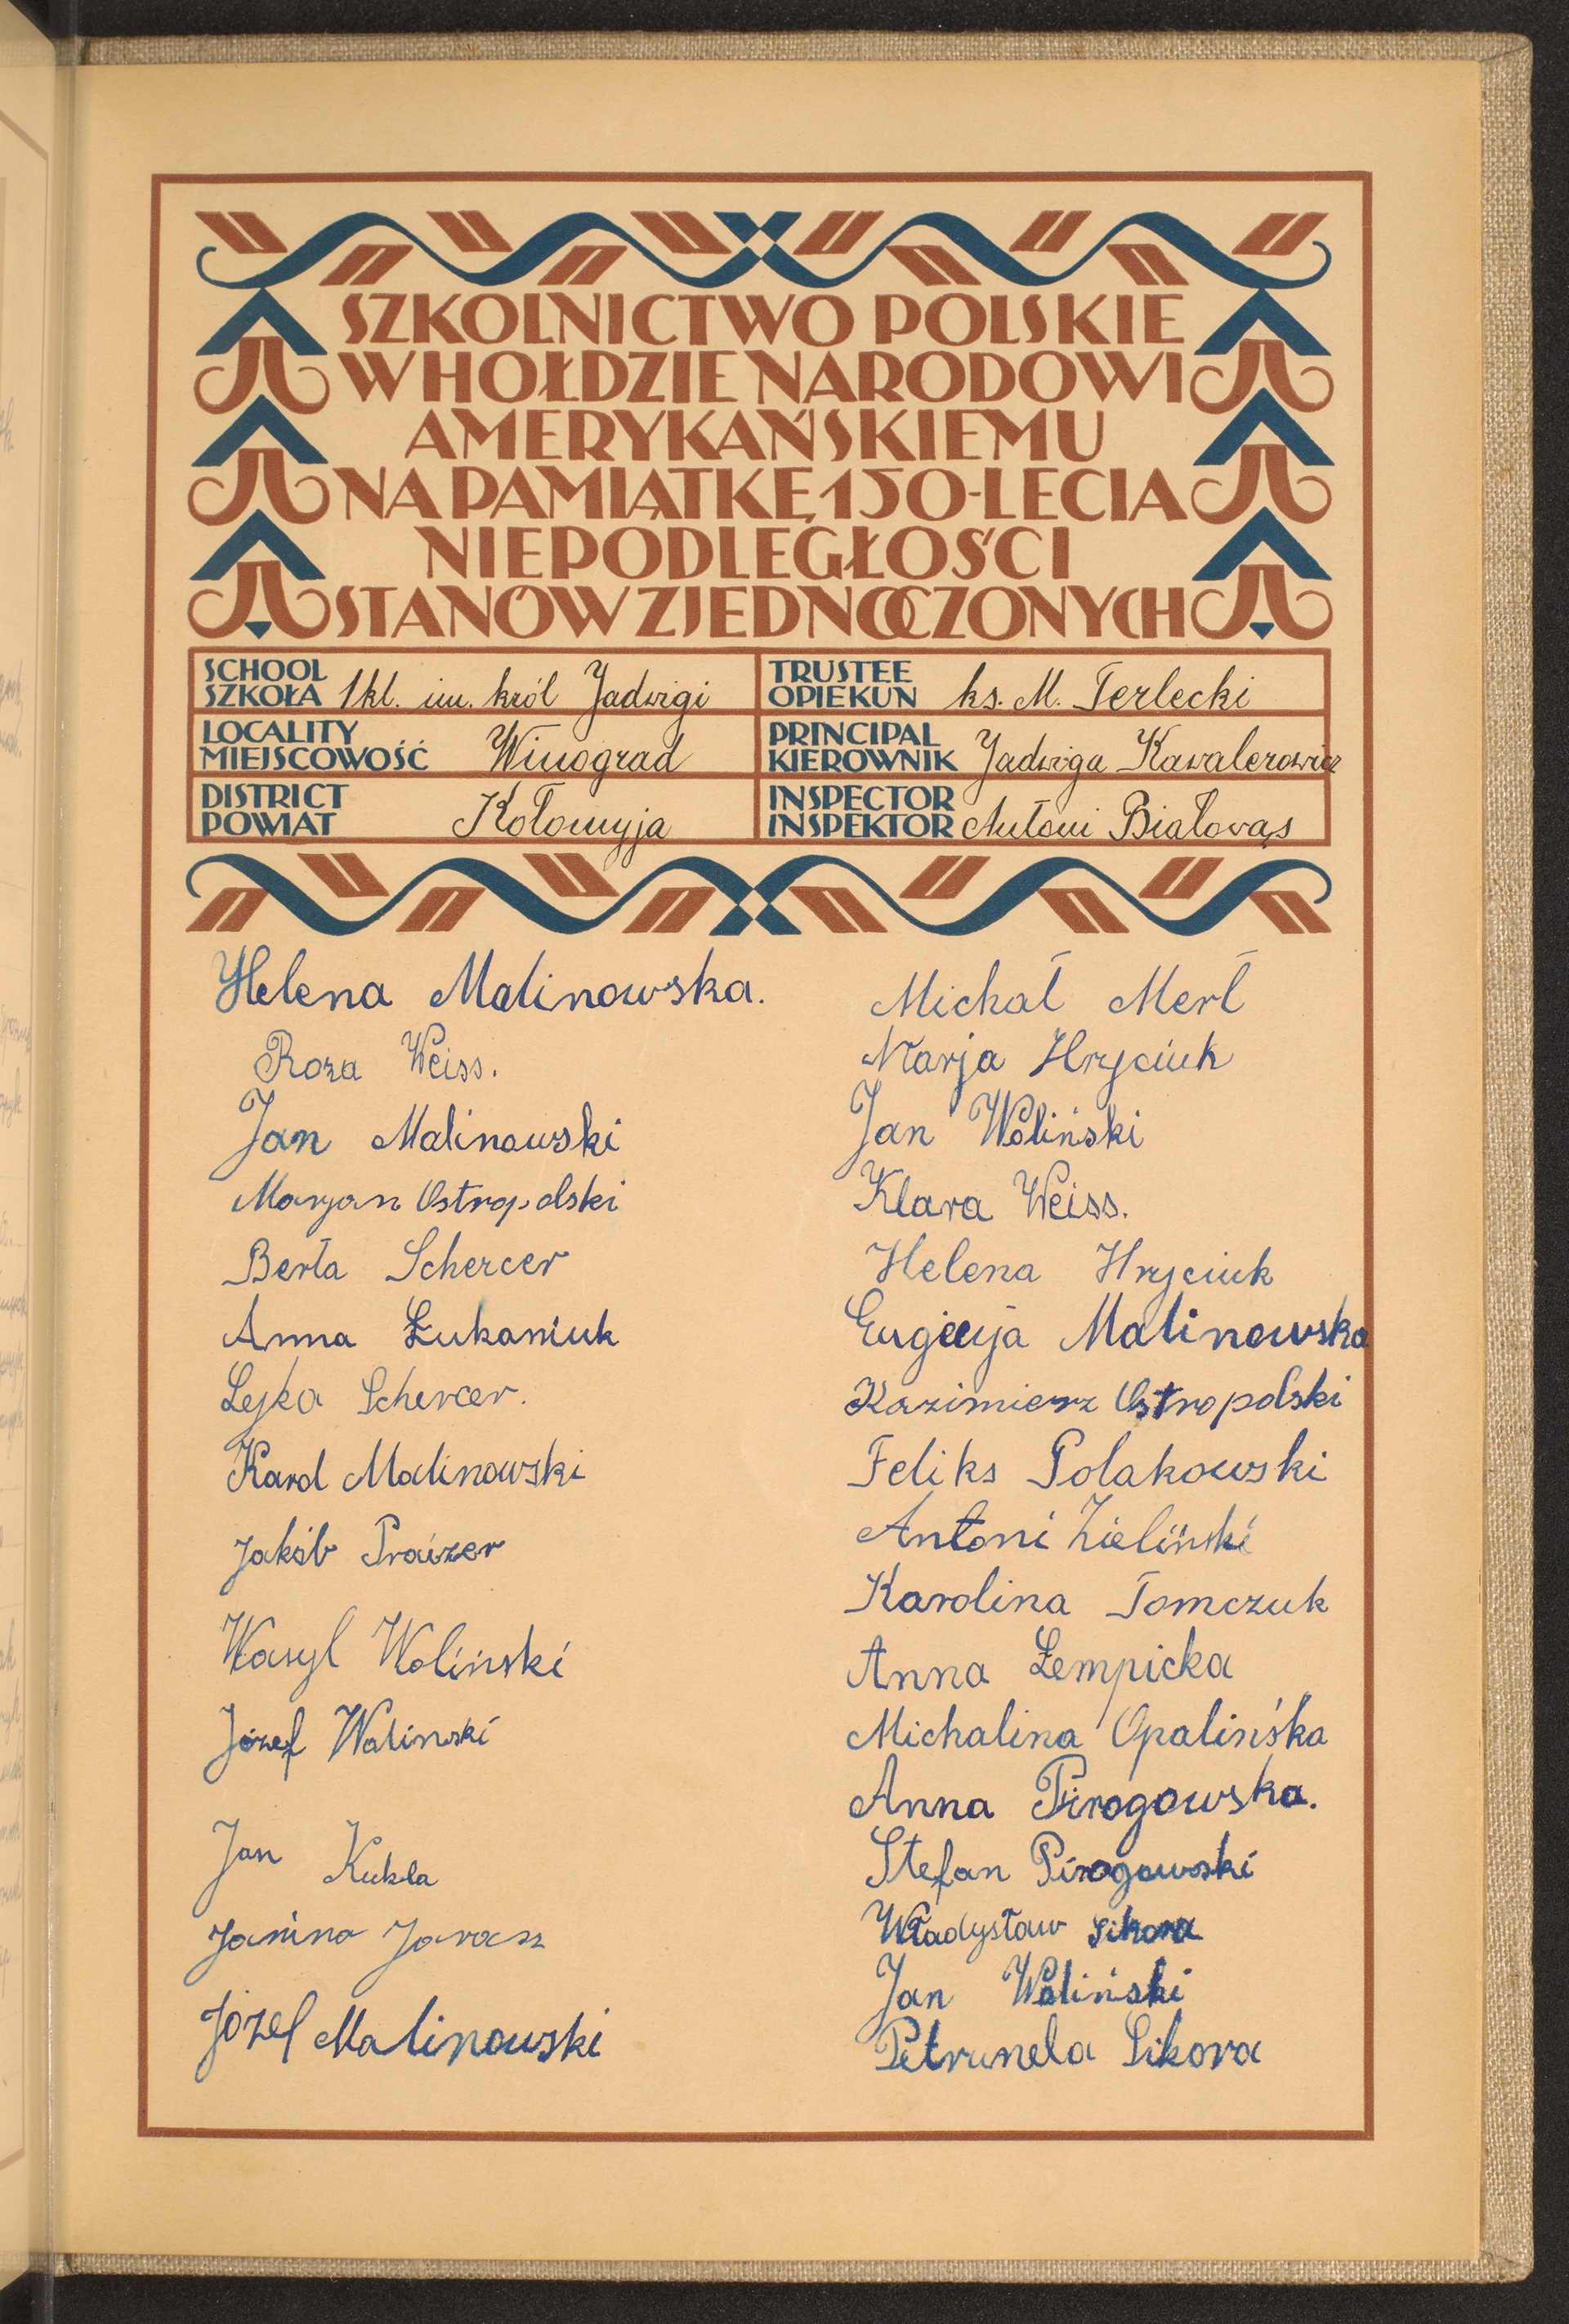 SZKOLNICTWO POLSKIE
W HOŁDZIE NARODOWI
AMERYKAŃSKIEMU
NA PAMIĄTKĘ 150-LECIA
NIEPODLEGŁOŚCI
STANÓW ZJEDNOCZONYCH
SCHOOL
SZKOŁA 1 kl. im. król Jadwigi
TRUSTEE
OPIEKUN ks. M. Terlecki
LOCALITY
MIEJSCOWOŚĆ Winograd
PRINCIPAL
KIEROWNIK Jadwiga Kawalerowicz
DISTRICT
POWIAT Kołomyja
INSPECTOR
INSPEKTOR Antoni Białowąs
Helena Malinowska.
Roza Weiss.
Jan Malinowski
Marjan Ostropolski
Berta Schercer
Anna Łukaniuk
Lejka Schercer.
Karol Malinowski
Jakób Praizer
Wasyl Woliński
Józef Woliński
Jan Kukla
Janina Jarasz
Józef Malinowski
Michał Merł
Marja Hryciuk
Jan Woliński
Klara Weiss.
Helena Hryciuk
Eugenja Malinowska
Kazimierz Ostropolski
Feliks Polakowski
Antoni Zieliński
Karolina Tomczuk
Anna Łempicka
Michalina Opalińska
Anna Pirogowska.
Stefan Pirogowski
Władysław Sikora
Jan Woliński
Petrunela Sikora